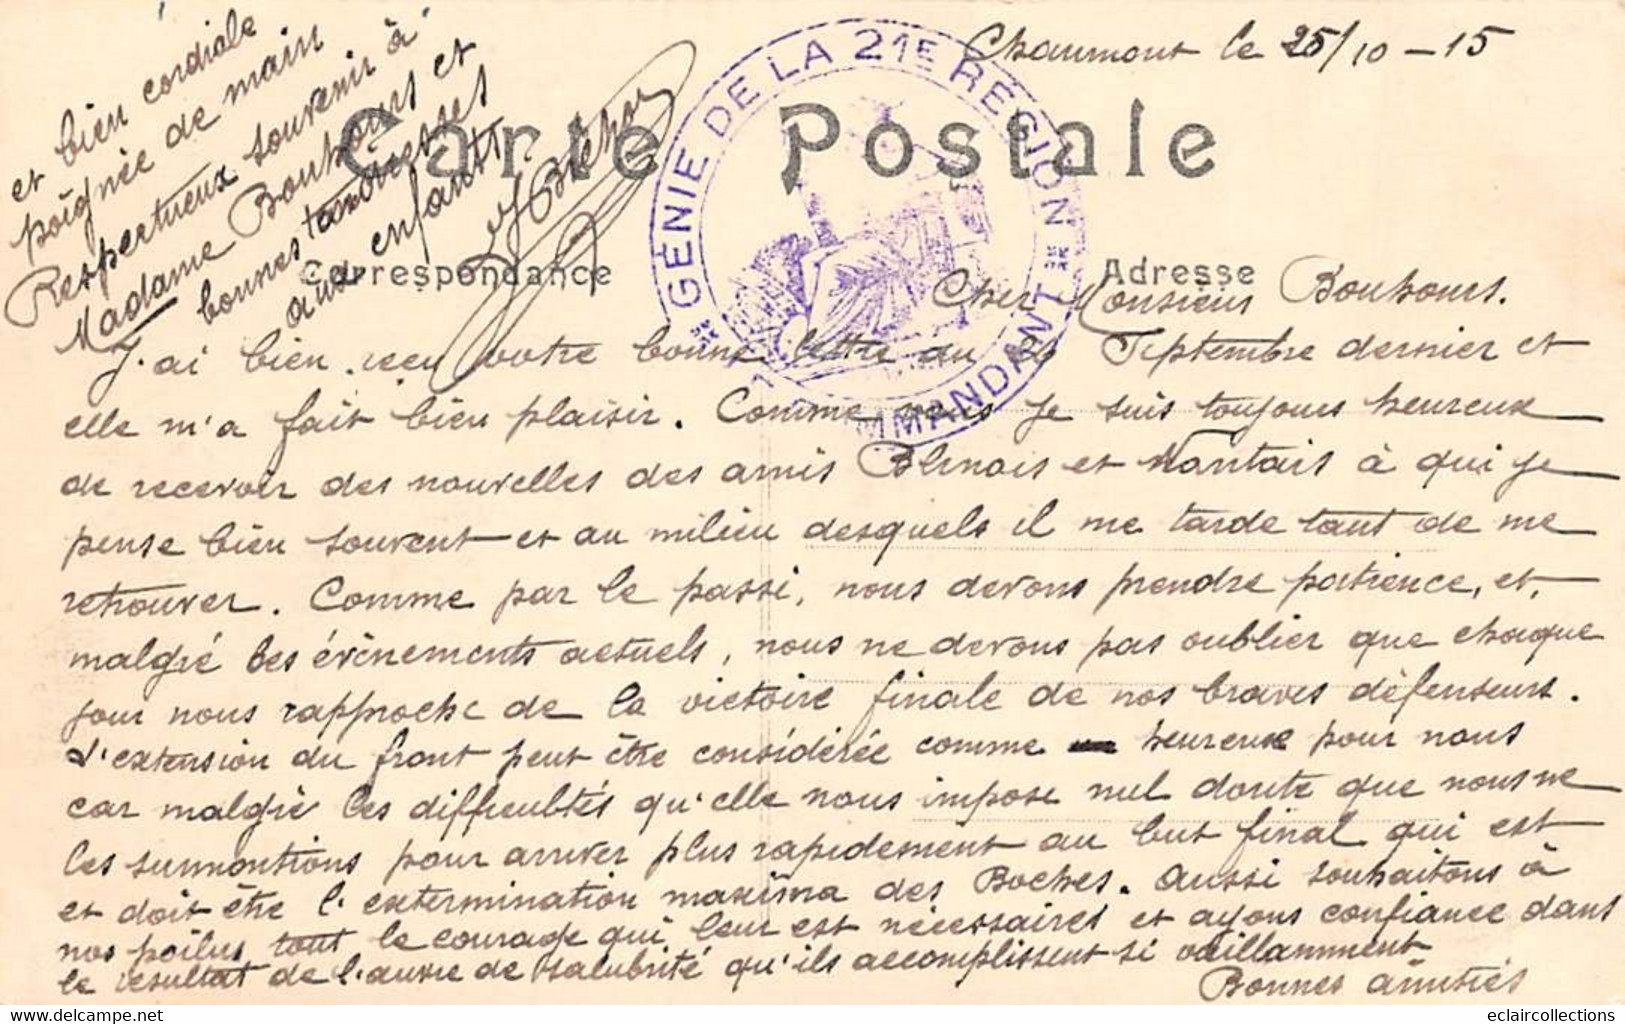 Chaumont le 25/10-15
Carte Postale
GÉNIE DE LA 21E RÉGION
MMANDANT
Correspondance
Adresse
Cher Monsieur Bouhours.
J'ai bien reçu votre bonne lettre du Septembre dernier et
elle m'a fait bien plaisir. Comme vous je suis toujours heureux
de recevoir des nouvelles des amis Blinois et Nantais à qui je
pense bien souvent et au milieu desquels il me tarde tant de me
retrouver. Comme par le passé, nous devons prendre patience, et,
malgré les évènements actuels, nous ne devons pas oublier que chaque
jour nous rapproche de la victoire finale de nos braves défenseurs.
L'extension du front peut être considérée comme heureuse pour nous
car malgré les difficultés qu'elle nous impose nul doute que nous ne
les surmontions pour arriver plus rapidement au but final qui est
et doit être l'extermination maxima des Boches. Aussi souhaitons à
nos poilus tout le courage qui leur est nécessaires et ayons confiance dans
le résultat de l'œuvre de salubrité qu'ils accomplissent si vaillamment
Bonnes amitiés
et bien cordiale
poignée de main
Respectueux souvenir à
Madame Bouhours et
bonnes caresses
aux enfants
eclaircollections
www.delcampe.net